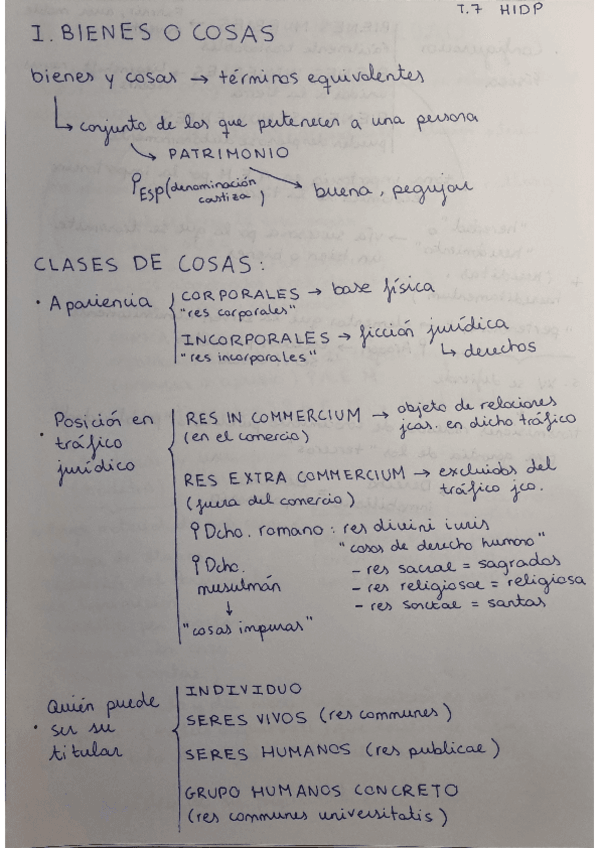 T.7 HIDP
I. BIENES O COSAS
bienes y cosas → términos equivalentes
↳ conjunto de los que pertenecen a una persona
↘ PATRIMONIO
ESP (denominación castiza) ↘ buena, pegujar
CLASES DE COSAS:
· Apariencia
CORPORALES → base física
"res corporales"
INCORPORALES → ficción jurídica
"res incorporales" ↳ derechos
· Posición en tráfico jurídico
RES IN COMMERCIUM → objeto de relaciones
(en el comercio) jcas. en dicho tráfico
RES EXTRA COMMERCIUM → excluidos del
(fuera del comercio) tráfico jco.
Dcho. romano: res divini iuris
"cosas de derecho humano"
- res sacrae = sagradas
- res religiosae = religiosa
- res sanctae = santas
Dcho. musulmán
↓
"cosas impuras"
· Quién puede ser su titular
INDIVIDUO
SERES VIVOS (res communes)
SERES HUMANOS (res publicae)
GRUPO HUMANOS CONCRETO
(res communes universitatis)